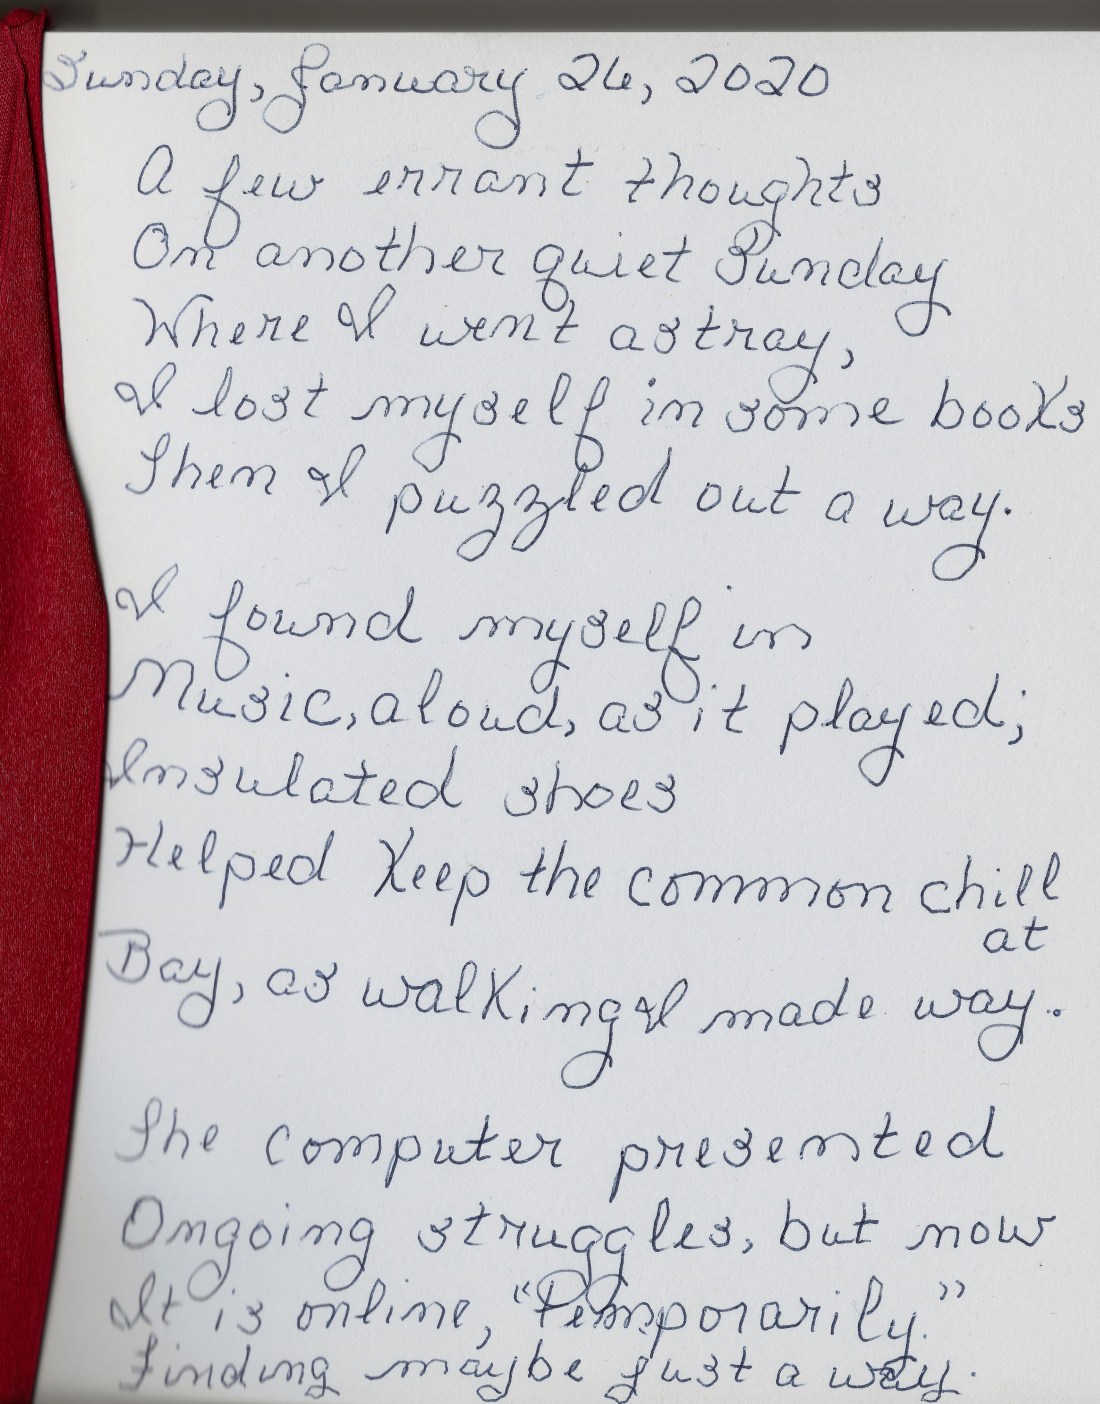 Sunday, January 26, 2020
A few errant thoughts
On another quiet Sunday
Where I went astray,
I lost myself in some books
Then I puzzled out a way.
I found myself in
Music, aloud, as it played;
Insulated shoes
Helped Keep the common chill
at
Bay, as walking I made way.
The computer presented
Ongoing struggles, but now
It is online, "Temporarily."
Finding maybe just a way.